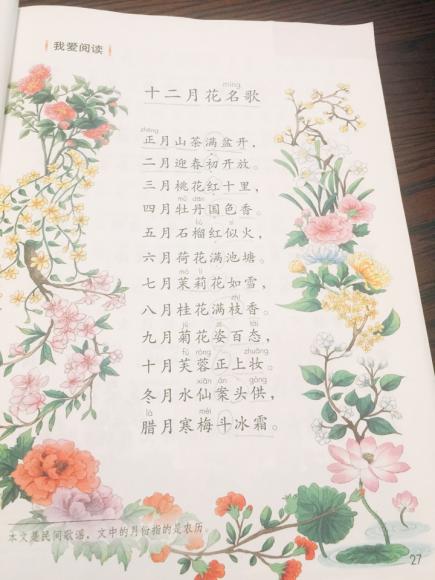 我爱阅读
míng
十二月花名歌
zhēng
正月山茶满盆开，
二月迎春初开放。
三月桃花红十里，
mǔ dān
四月牡丹国色香。
liú sì
五月石榴红似火，
六月荷花满池塘。
mò lì
七月茉莉花如雪，
zhī
八月桂花满枝香。
zī tài
九月菊花姿百态，
fú róng zhuāng
十月芙蓉正上妆。
xiān àn gòng
冬月水仙案头供，
là méi
腊月寒梅斗冰霜。
本文是民间歌谣，文中的月份指的是农历。
27